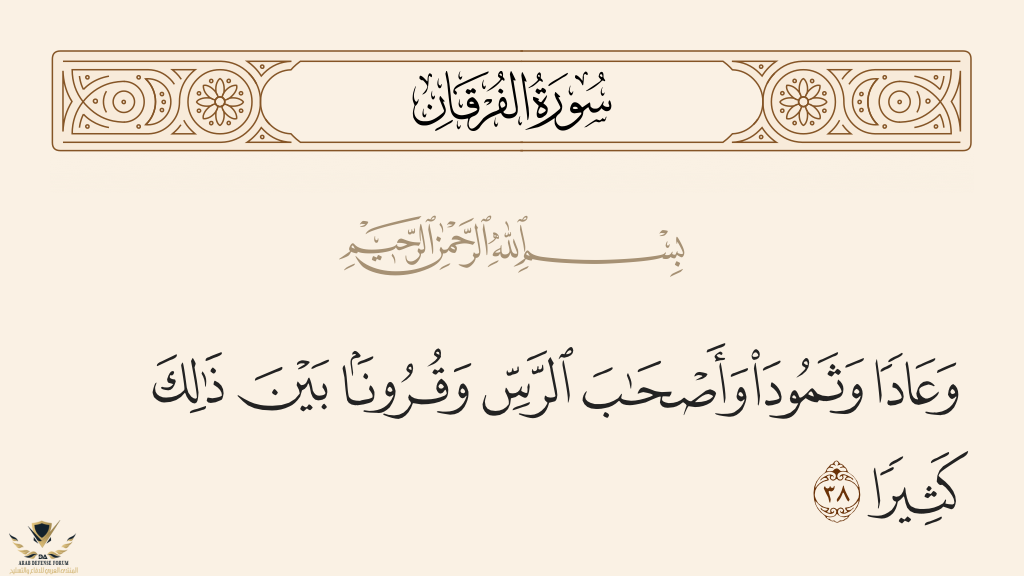 سُورَةُ الفُرْقَانِ
بِسْمِ ٱللَّهِ ٱلرَّحْمَٰنِ ٱلرَّحِيمِ
وَعَادًا وَثَمُودَا۟ وَأَصْحَٰبَ ٱلرَّسِّ وَقُرُونًۢا بَيْنَ ذَٰلِكَ
كَثِيرًا ٣٨
DA
ARAB DEFENSE FORUM
المنتدى العربي للدفاع والتسليح